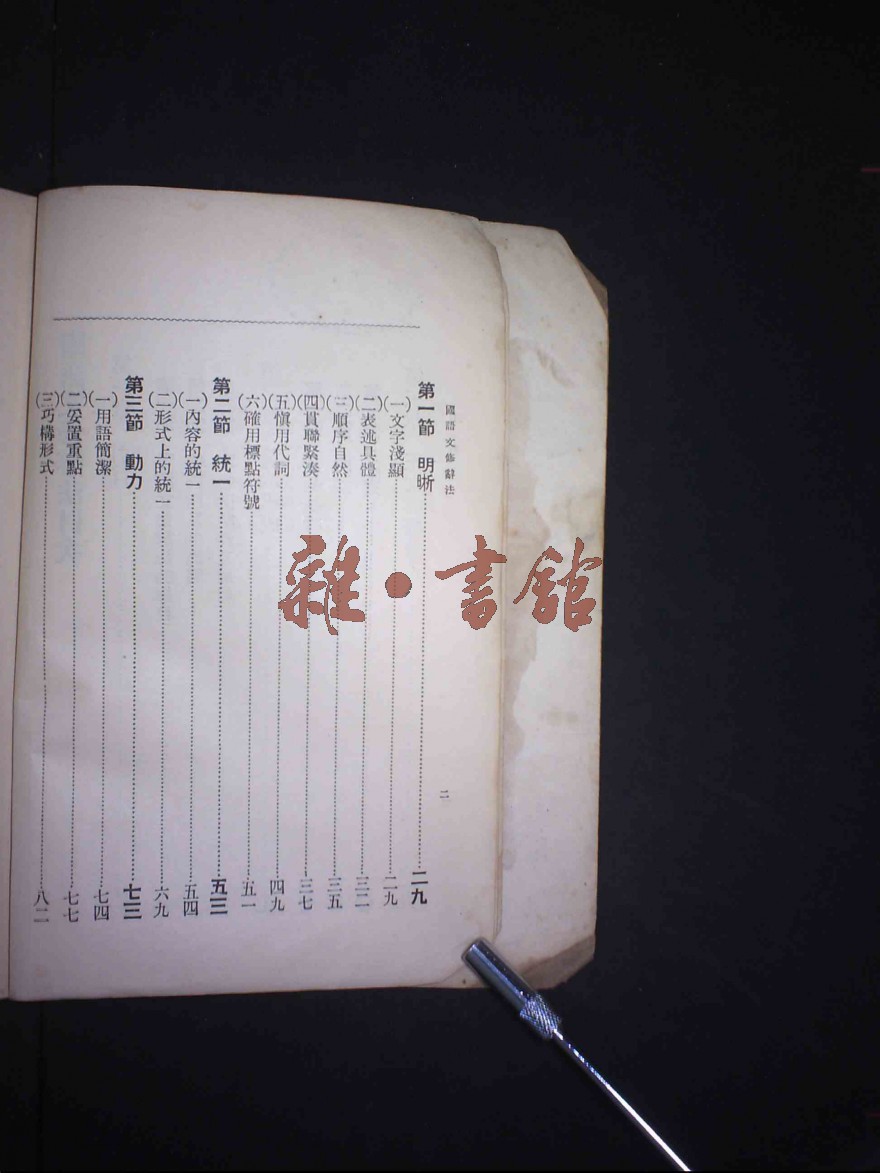 國語文修辭法
二
第一節　明晰……二九
(一)文字淺顯……二九
(二)表述具體……三二
(三)順序自然……三五
(四)貫聯緊湊……三七
(五)愼用代詞……四九
(六)確用標點符號……五一
第二節　統一……五三
(一)內容的統一……五四
(二)形式上的統一……六九
第三節　動力……七三
(一)用語簡潔……七四
(二)妥置重點……七七
(三)巧構形式……八二
雜・書館